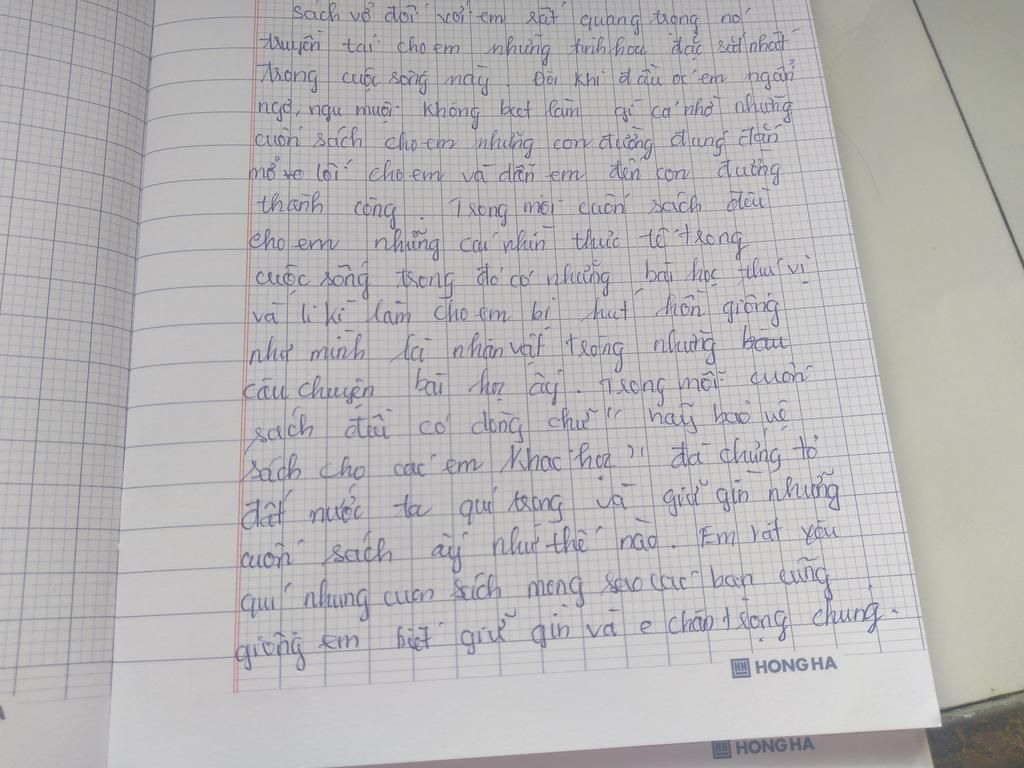 sách vở đối với em rất quang trọng nó
truyền tải cho em những tinh hoa đặc sắt nhất
trong cuộc sống này. Đôi khi đầu óc em ngẩn
ngơ, ngu muội không biết làm gì cả nhờ những
cuốn sách cho em những con đường đúng đắn
mở ve lối cho em và dẫn em đến con đường
thành công. Trong mỗi cuốn sách đều
cho em những cái nhìn thực tế trong
cuộc sống trong đó có những bài học thú vị
và li kì làm cho em bị hút hồn giống
như mình là nhân vật trong những
câu chuyện bài học ấy. Trong mỗi cuốn
sách đều có dòng chữ "hãy bảo vệ
sách cho các em khác học" đã chứng tỏ
đất nước ta quí trọng và giữ gìn những
cuốn sách ấy như thế nào. Em rất yêu
quí những cuốn sách mong sao các bạn cũng
giống em biết giữ gìn và chân trọng chúng.
HONG HA
HONG HA